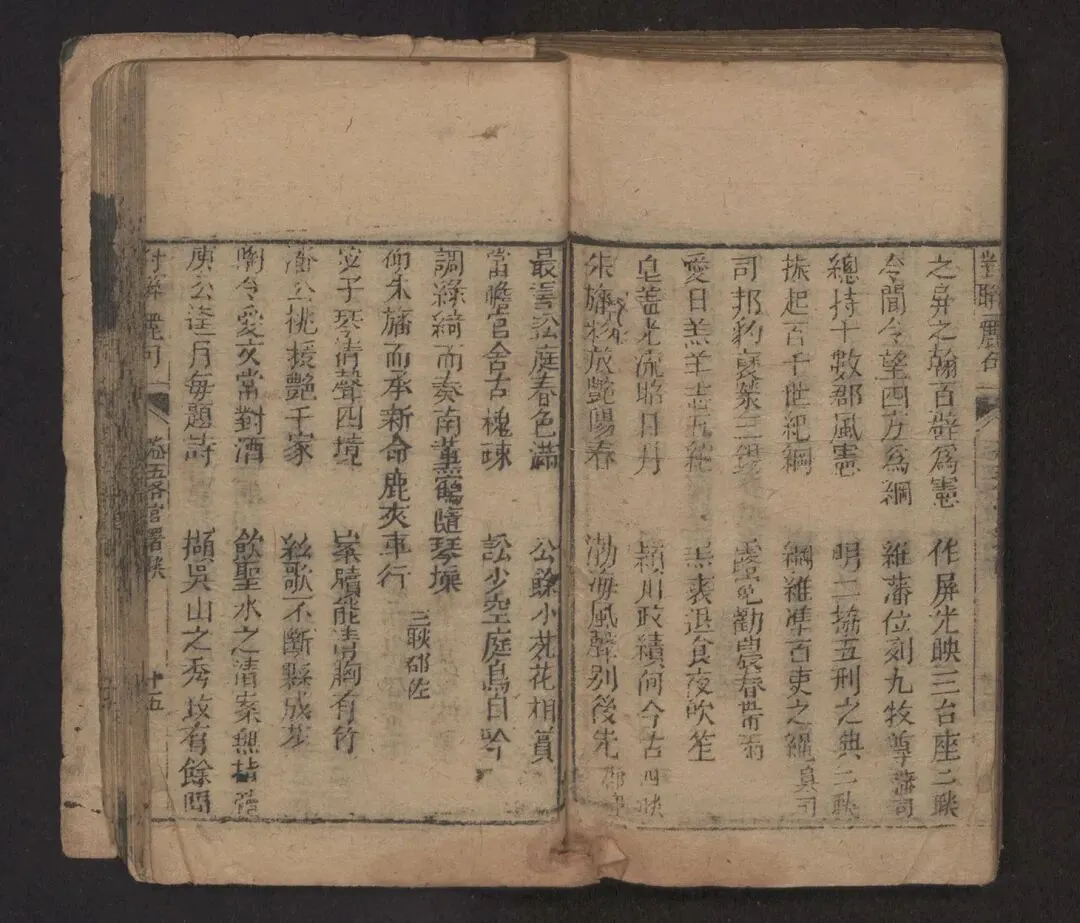 對聯麗句
之屏之翰百辟為憲 作屏光映三台座二聯
令聞令望四方為綱 維藩位列九牧尊藩司
總持十數郡風憲 明二協五刑之典二聯
振起百千世紀綱 綱維準百吏之繩臬司
司邦豹 三 勸農春帶雨
愛日羔羊 五紽 退食夜吹笙
皂蓋光流昭日月 潁川政績何今古四聯
朱旛 放艷陽春 渤海風聲別後先郡
最 訟庭春色滿 公餘小苑花相賞
當簷官舍古槐疎 訟少空庭鳥自吟
調綠綺而奏南薰鶴隨琴操
仰朱旛而承新命鹿夾車行 三聯郡佐
宓子琴清聲四境 案牘能清胸有竹
潘公桃援艷千家 絃歌不斷縣成花
陶令愛衣當對酒 飲聖水之清案無
庾公 月每題詩 擷吳山之秀政有餘閒
對聯麗句 卷五各官署聯 十五